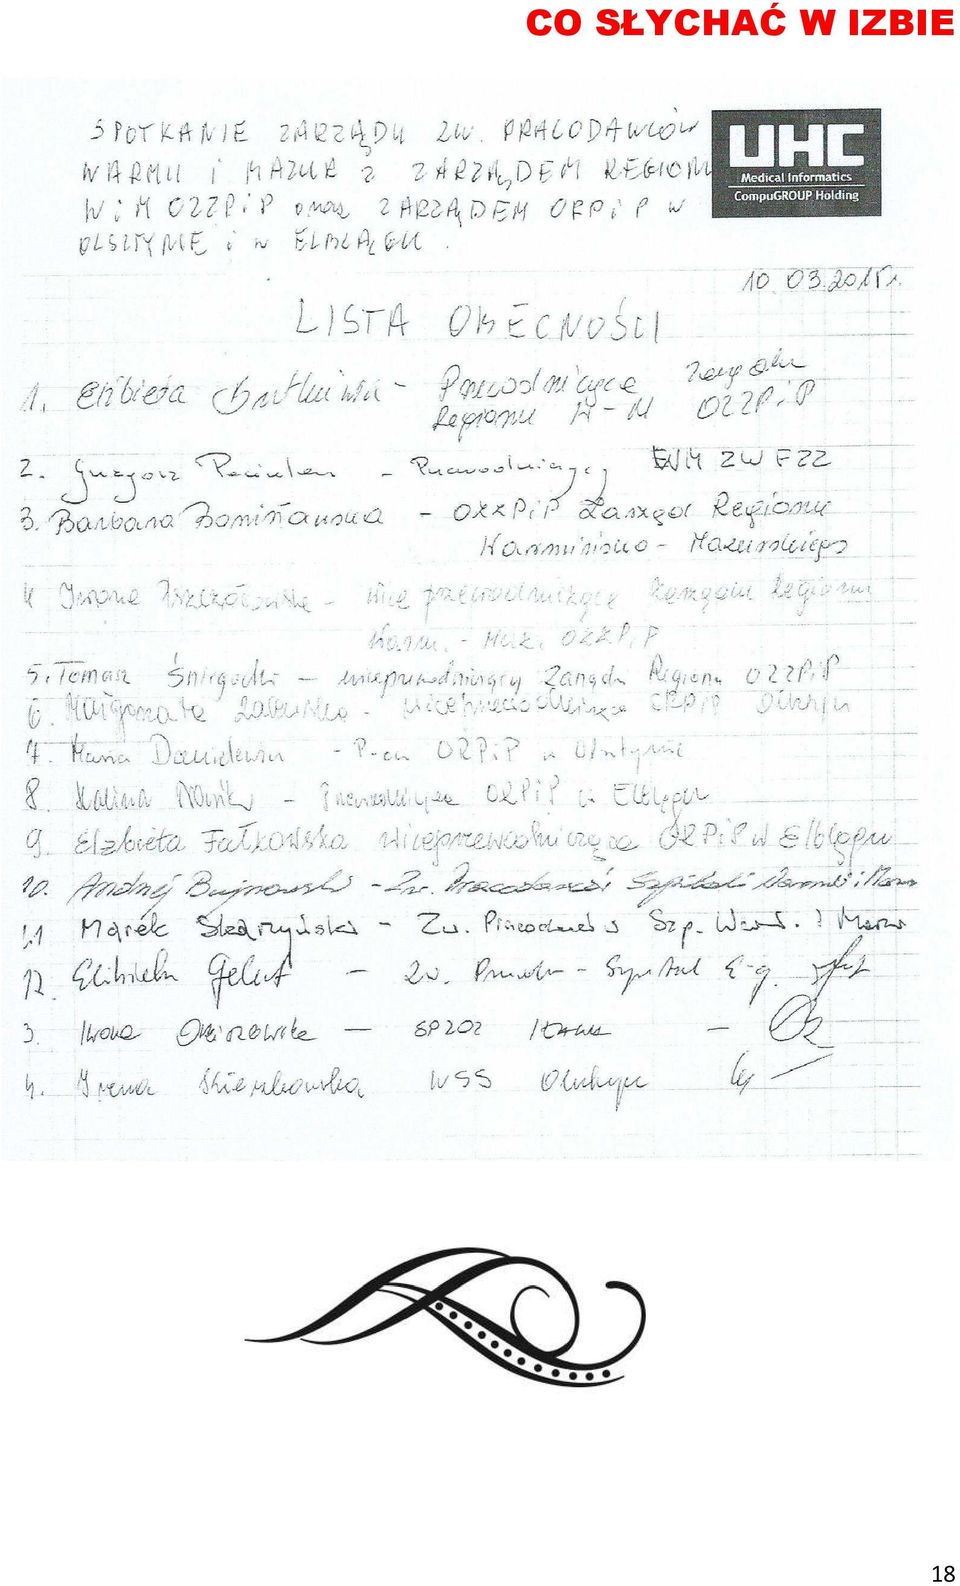 CO SŁYCHAĆ W IZBIE
SPOTKANIE ZARZĄDU ZW. PRACODAWCÓW
WARMII i MAZUR z ZARZĄDEM REGIONU
W i M OZZPiP oraz ZARZĄDEM ORPiP w
OLSZTYNIE i w ELBLĄGU.
UHC
Medical Informatics
CompuGROUP Holding
10.03.2015r.
LISTA OBECNOŚCI
1. Elżbieta - Przewodnicząca Zarządu
Regionu W-M OZZPiP
2. Grzegorz - Przewodniczący ZW FZZ
3. Barbara - OZZPiP Zarząd Regionu
Warmińsko-Mazurskiego
4. Iwona - Wiceprzewodnicząca Zarządu Regionu
Warm. - Maz. OZZPiP
5. Tomasz - wiceprzewodniczący Zarządu Regionu OZZPiP
6. Małgorzata - Wiceprzewodnicząca ORPiP Olsztyn
7. Maria Danielewicz - P-ca ORPiP w Olsztynie
8. Halina Nowik - Przewodnicząca ORPiP w Elblągu
9. Elżbieta Fałkowska Wiceprzewodnicząca ORPiP w Elblągu
10. Andrzej Bujnowski - Zw. Pracodawców Szpitali Warmii i Mazur
11 Marek Skarzyński - Zw. Pracodawców Szp. Warm. i Mazur
12. Elżbieta Gelert - Zw. Pracod. - Szpital E-g.
3. Iwona Orkiszewska - SPZOZ Iława -
4. Irena Kierzkowska WSS Olsztyn
18